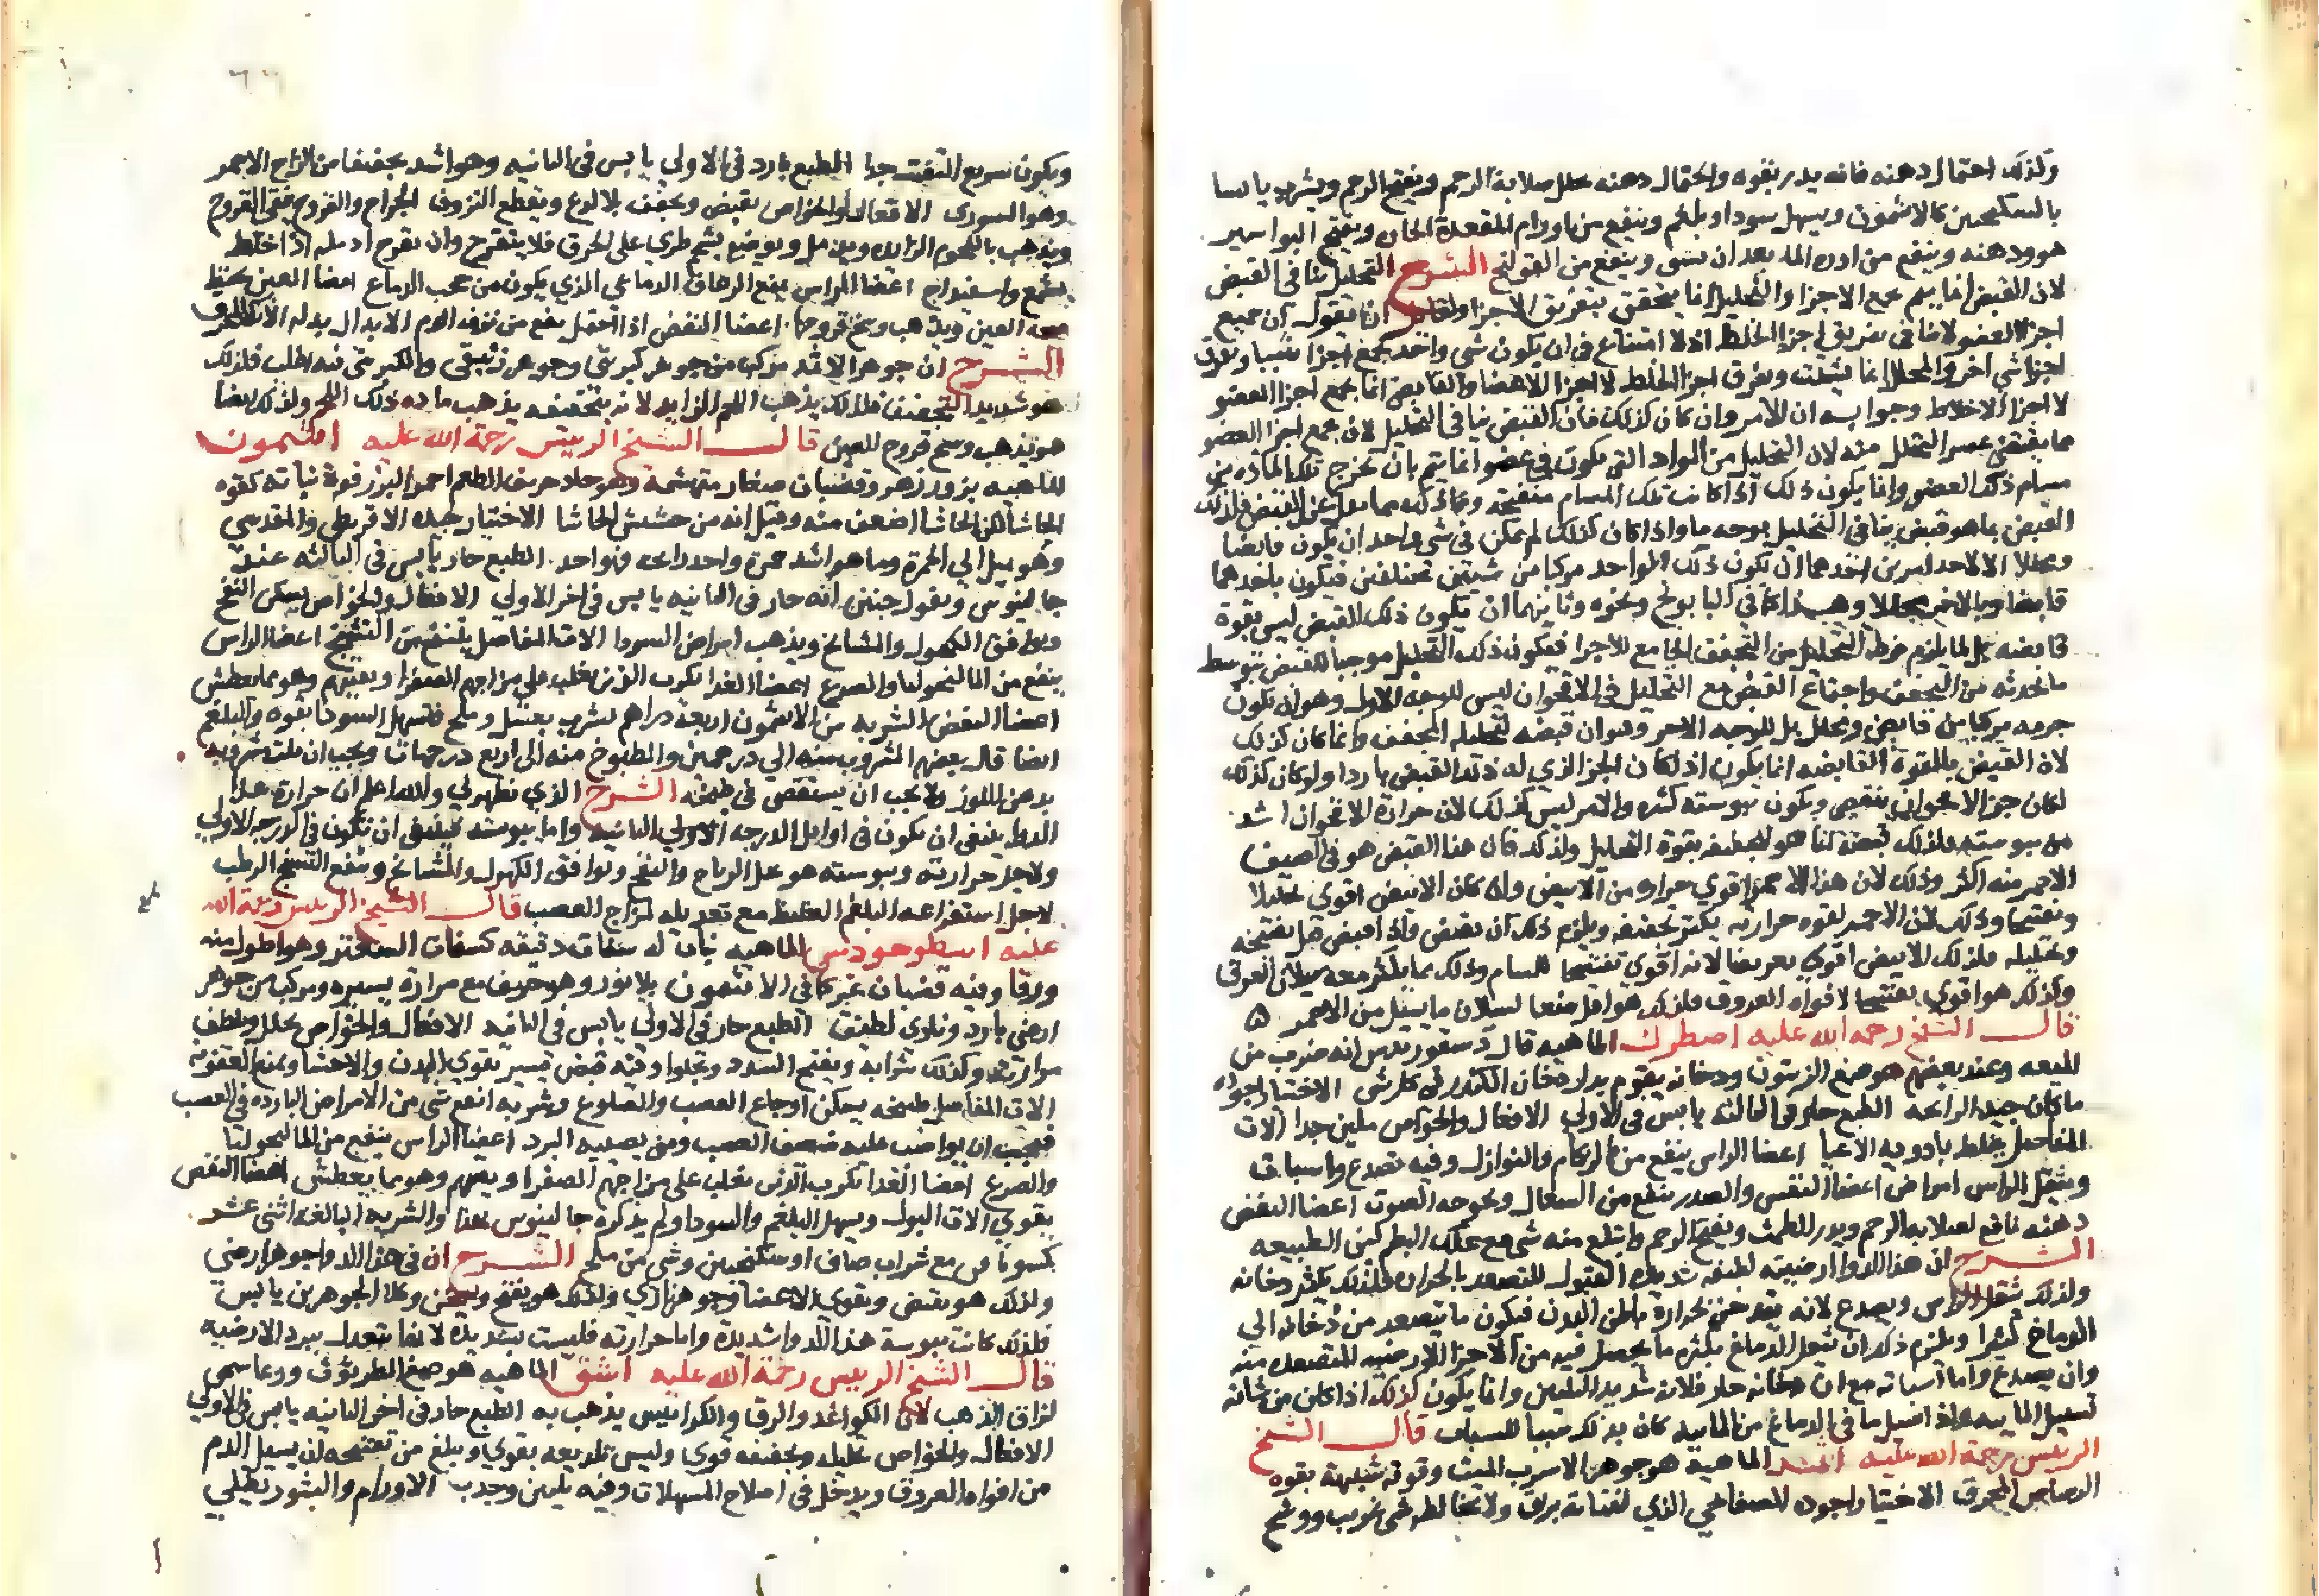 ولذلك احتمال دهنه فانه يدر بقوه واحتمال دهنه يحلل صلابة الرحم ويفتح الرحم ويشرب يابسا
بالسكنجبين كالافتمون ويسهل سودا وبلغم وينفع من اورام المقعدة الحاره ويفتح البواسير
هو ودهنه وينفع من ادرة الما بعد ان تشق وينفع من القولنج الشرح التحليل ينافي القبض
لان القبض انما يتم بجمع الاجزا والتحليل انما يتحقق بتفريق الاجزا ولقايل ان يقول ان جميع
اجزا العضو لا ينافي تفريق اجزا الخلط اذ لا امتناع في ان يكون شي واحد يجمع اجزا شي ويفرق
اجزا شي اخر والمحلل انما يشتت ويفرق اجزا الخلط لا اجزا الاعضا والقابض انما يجمع اجزا العضو
لا اجزا الاخلاط وجوابه ان الامر وان كان كذلك فان القبض ينافي التحليل لان جمع اجزا العضو
مما يقتضي عسر التحلل منه لان التحليل من المواد التي يكون في عضو انما يتم بان تخرج تلك الماده من
مسام ذلك العضو وانما يكون ذلك اذا كانت تلك المسام منفتحة وذلك مما عن القبض فلذلك
القبض بما هو قبض ينافي التحليل بوجه ما واذا كان كذلك لم يمكن في شي واحد ان يكون قابضا
ومحللا الا لاحد امرين احدهما ان يكون ذلك الواحد مركبا من شيئين مختلفين فيكون باحدهما
قابضا وبالاخر محللا وهذا كما في البابونج ونحوه وثانيهما ان يكون ذلك القبض ليس بقوة
قابضه بل لما يلزم فرط التحليل من التجفيف الجامع للاجزا فيكون ذلك التحليل موجبا للقبض بتوسط
ما يحدثه من التجفيف واجتماع القبض مع التحليل في الاقحوان ليس للوجه الاول وهو ان يكون
جرمه مركبا من قابض ومحلل بل للوجه الاخر وهو ان قبضه لتحليله المجفف وانما كان كذلك
لان القبض بالقوة القابضه انما يكون اذا كان الجز الذي له ذلك القبض باردا ولو كان كذلك
لكان جز الاقحوان ينقص ويكون يبوسته كثيره والامر ليس كذلك لان حرارة الاقحوان اشد
من يبوسته فلذلك قبضه انما هو لتجفيفه بقوة التحليل ولذلك فان هذا القبض هو في الصيف
الاحمر منه اكثر وذلك لان هذا الاحمر اقوي حراره من الابيض وان كان الابيض اقوي تحليلا
وتفتيحا وذلك لان الاحمر لقوه حرارته يكثر تجفيفه ويلزم ذلك ان يقبض واذا قبض قل تفتيحه
وتحليله فلذلك الابيض اقوي تعريقا لانه اقوي تفتيحا للمسام وذلك مما يكثر معه سيلان العرق
وكذلك هو اقوي تفتيحا لافواه العروق فلذلك هو اقل منعا لسيلان ما يسيل من الاحمر ه
قال الشيخ رحمه الله عليه اصطرك الماهيه قال ديسقوريدس انه ضرب من
الميعه وعند بعضهم هو صمغ الزيتون ودخانه يقوم بدل دخان الكندر في كل شي الاختيار اجوده
ما كان جيد الرايحه الطبع حار في الثالثه يابس في الاولي الافعال والخواص ملين جدا الات
المفاصل يخلط بادويه الاعيا اعضا الراس ينفع من الزكام والنوازل وفيه تصدع واسبات
وينقل الراس امراض اعضا النفس والصدر ينفع من السعال وبحوحه الصوت اعضا النفض
دهنه نافع لصلابه الرحم ويدر الطمث ويفتح الرحم وابتلع منه شي مع علك البطم لين الطبيعه
الشرح ان هذا الدوا ارضيته لطيفه شديده القبول للتصعد بالحراره فلذلك يكثر دخانه
ولذلك يثقل الراس ويصدع لانه يتدخن بحرارة باطن البدن فيكون ما يتصعد من دخانه الي
الدماغ كثيرا ويلزم ذلك ان يثقل الدماغ بكثره ما يحصل فيه من الاجزا الارضيه المتصعده منه
وان يصدع واما اسباته مع ان دخانه حار فلانه شديد التليين وانما يكون كذلك اذا كان من شانه
تسييل الماييه واذا اسيل ما في الدماغ من الماييه كان بذلك سببا للسبات قال الشيخ
الرييس رحمة الله عليه اثمد الماهية هو جوهر الاسرب الميت وقوته شبيهة بقوه
الرصاص المحرق الاختيار اجوده الصفايحي الذي لفتاته بريق ولا يخالطه شي غريب ووسخ
ويكون سريع التفتت جدا الطبع بارد في الاولي يابس في الثانيه وهو اشد تجفيفا من الزاج الاحمر
وهو السوري الافعال والخواص يقبض ويجفف بلا لذع ويقطع النزوف الجراح والقروح ينقي القروح
ويذهب باللحوم الزايده ويدمل ويوضع بشحم طري علي الحرق فلا يتقرح وان تقرح ادمله اذا خلط
بشمع واسفيداج اعضا الراس يمنع الرعاف الدماغي الذي يكون من حجب الدماغ اعضا العين يحفظ
صحة العين ويذهب وسخ قروحها اعضا النفض اذا احتمل ينفع من نزف الدم الابدال بدله الانك المحرق
الشرح ان جوهر الاثمد مركب من جوهر كبريتي وجوهر زيبقي والكبريتي فيه اغلب فلذلك
هو شديد التجفيف فلذلك يذهب اللحم الزايد لانه بتجفيفه يذهب ماده ذلك اللحم ولذلك ايضا
هو يذهب وسخ قروح العين قال الشيخ الرييس رحمة الله عليه افتيمون
الماهيه بزور وزهر وقضبان صغار متهشمة وهو حاد حريف الطعم احمر البزر قوة نباته كقوه
الحاشا لكن الحاشا اضعف منه وقيل انه من حشيش الحاشا الاختيار جيده الاقريطي والمقدسي
وهو يميل الي الحمرة وما هو اشد حمرة واحد رايحه فهو اجود الطبع حار يابس في الثالثه عند
جالينوس ويقول حنين انه حار في الثانيه يابس في اخر الاولي الافعال والخواص يسكن النفخ
ويوافق الكهول والمشايخ ويذهب امراض السودا الات المفاصل ينفع من التشنج اعضا الراس
ينفع من المالنخوليا والصرع اعضا الغذا يكرب الذين يغلب علي مزاجهم الصفرا ويقييهم وهو مما يعطش
اعضا النفض الشربه من الافتمون اربعة دراهم يشرب بعسل وملح فيسهل السودا بقوه والبلغم
ايضا قال بعضهم المشروب منه الي درهمين والمطبوخ منه الي اربع درهمات ويجب ان يلت مشروبه
بدهن اللوز ولا يجب ان يستقصي في طبخه الشرح الذي يظهر لي والله اعلم ان حرارة هذا
الدوا ينبغي ان يكون في اوايل الدرجه الثانيه واما يبوسته فينبغي ان تكون في الدرجه الاولي
ولاجل حرارته ويبوسته هو يحلل الرياح والنفخ ويوافق الكهول والمشايخ وينفع التشنج الرطب
لاجل استفراغه البلغم الغليظ مع تعديله لمزاج العصب قال الشيخ الرييس رحمة الله
عليه اسطوخودس الماهيه نبات له سفات دقيقه كسفات السعتر وهو اطول منه
ورقا وفيه قضبان غبر كما في الافتمون بلا نور وهو حريف مع مرارة يسيره ومركب من جوهر
ارضي بارد وناري لطيف الطبع حار في الاولي يابس في الثانيه الافعال والخواص يحلل ويلطف
مرارته وكذلك شرابه ويفتح السدد ويجلوا وفيه قبض يسير يقوي البدن والاحشا ويمنع العفونه
الات المفاصل طبيخه يسكن اوجاع العصب والضلوع وشربه انفع شي من الامراض البارده في العصب
فيجب ان يواضب عليه ضعيف العصب ومن يصيبه البرد اعضا الراس ينفع من المالنخوليا
والصرع اعضا الغذا يكرب الذين يغلب علي مزاجهم الصفرا ويقييهم وهو مما يعطش اعضا النفض
يقوي الات البول ويسهل البلغم والسودا ولم يذكره جالينوس بهذا والشربه البالغه اثني عشر
كسوثافن مع شراب صاف او سكنجبين وشي من ملح الشرح ان في هذا الدوا جوهر ارضي
ولذلك هو يقبض ويقوي الاعضا وجوهر ناري ولذلك هو يفتح ويسخن وكلا الجوهرين يابس
فلذلك كانت يبوسة هذا الدوا شديدة واما حرارته فليست بشديدة لانها يتعدل ببرد الارضيه
قال الشيخ الرييس رحمة الله عليه اشق الماهيه هو صمغ الطرثوث وربما سمي
لزاق الذهب لان الكواغد والرق والكراريس يذهب به الطبع حار في اخر الثانيه يابس في الاولي
الافعال والخواص تحليله وتجفيفه قوي وليس تلذيعه بقوي ويبلغ من تفتيحه ان يسيل الدم
من افواه العروق ويدخل في اصلاح المسهلات وفيه تليين وجذب الاورام والبثور يطلي